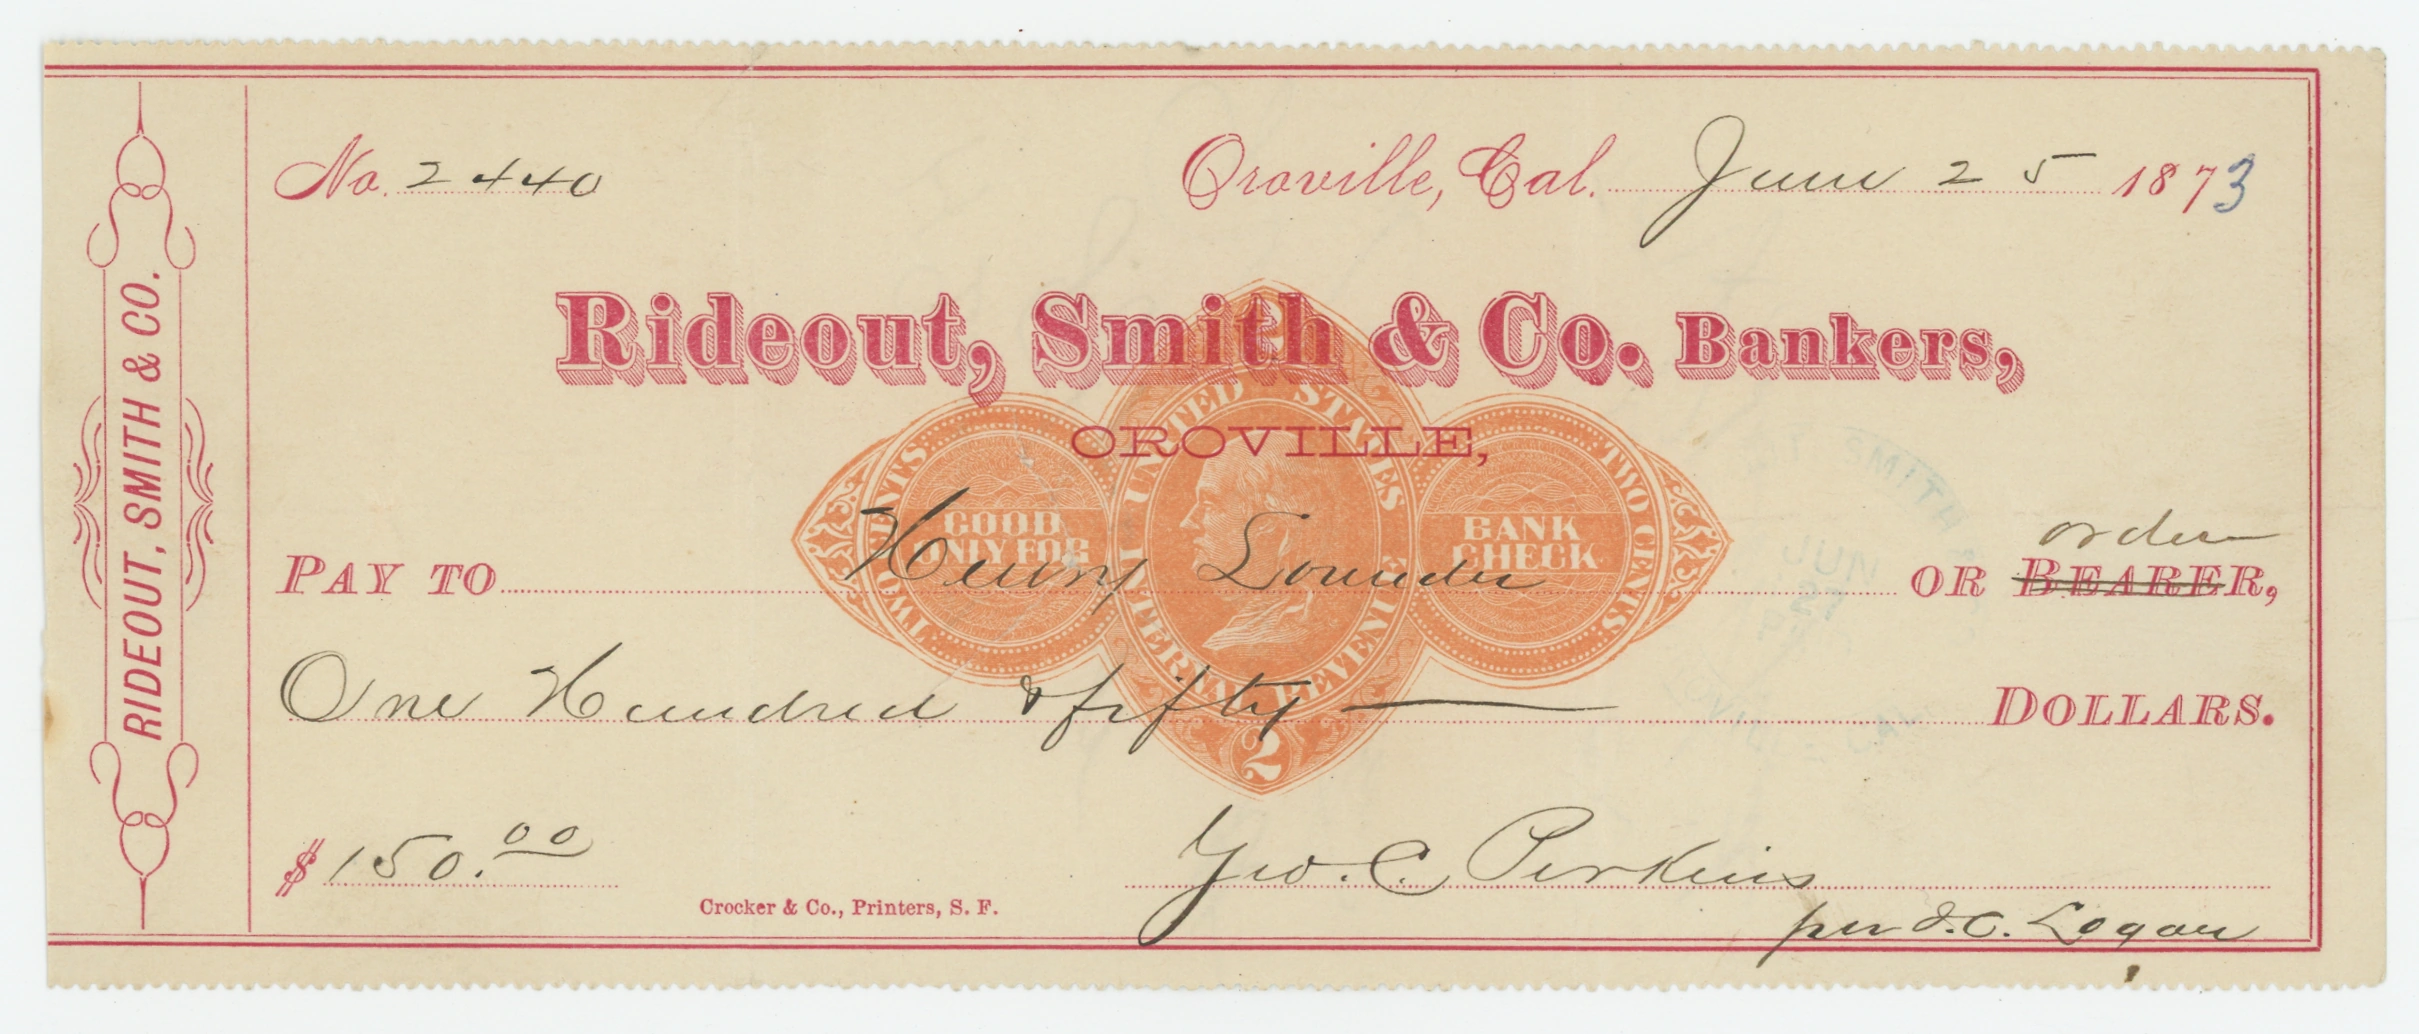 No. 2440
Oroville, Cal. June 25 1873
RIDEOUT, SMITH & CO.
Rideout, Smith & Co. Bankers,
OROVILLE,
2
UNITED STATES INTERNAL REVENUE
TWO CENTS
GOOD ONLY FOR
BANK CHECK
TWO CENTS
SMITH
JUN 27
order
PAY TO Henry Lounder OR BEARER,
One Hundred & fifty DOLLARS.
2
$ 150.00
Geo. C. Perkins
per J. C. Logan
Crocker & Co., Printers, S. F.